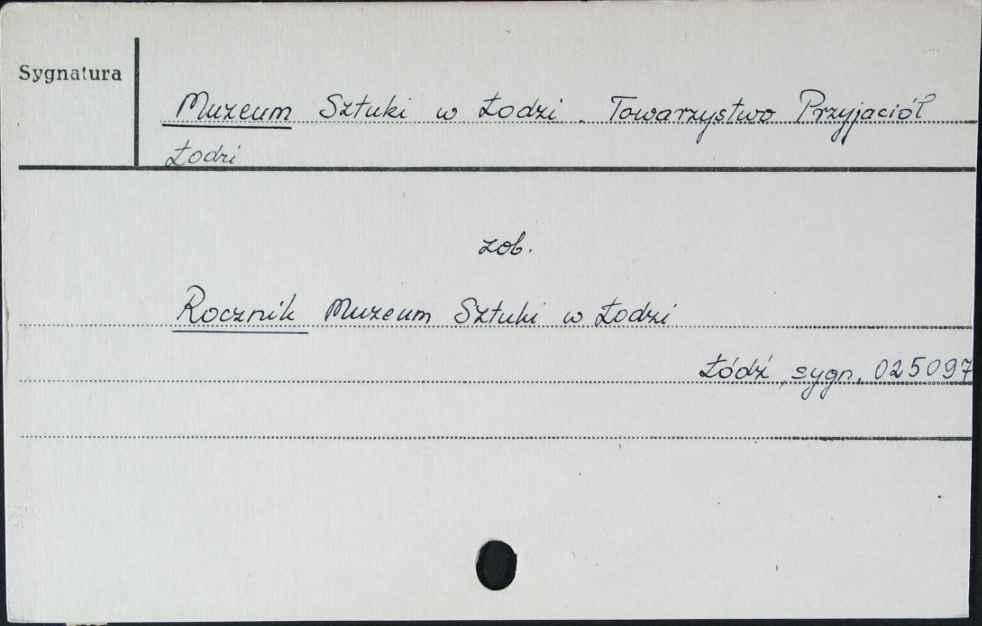 Sygnatura
Muzeum Sztuki w Łodzi. Towarzystwo Przyjaciół
Łodzi
zob.
Rocznik Muzeum Sztuki w Łodzi
Łódź, sygn. 025097